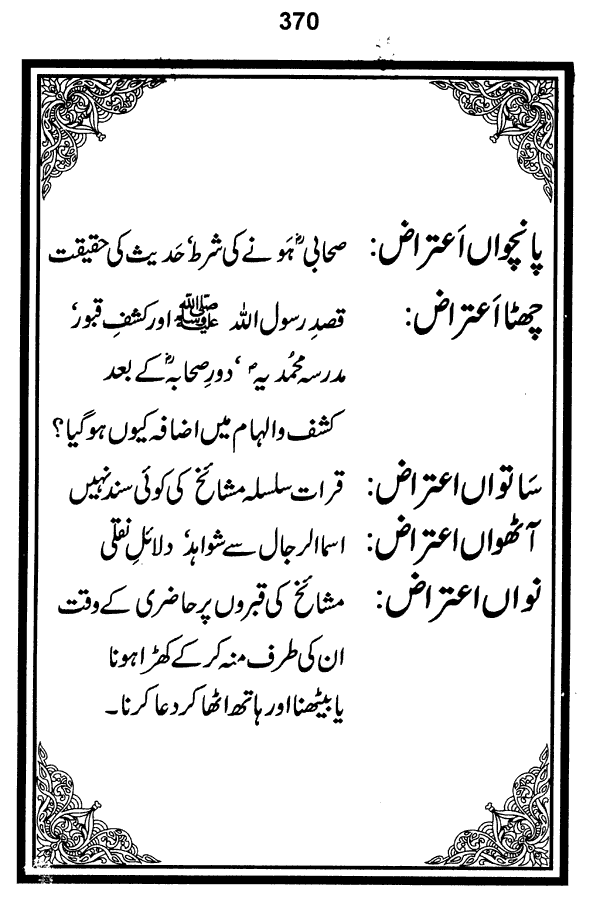 370
پانچواں اَعتراض: صحابیؓ ہَونے کی شرط، حَدیث کی حقیقت
چھٹا اَعتراض: قصدِ رسول اللہ ﷺ اور کشفِ قبور،
مدرسہ محمُدیہؐ، دورِ صحابہؓ کے بعد
کشف و الہام میں اضافہ کیوں ہوگیا؟
سَاتواں اعتراض: قرات سلسلہ مشائخ کی کوئی سند نہیں
آٹھواں اعتراض: اسما الرجال سے شواہد، دلائلِ نقلی
نواں اعتراض: مشائخ کی قبروں پر حاضری کے وقت
ان کی طرف منہ کر کے کھڑا ہونا
یا بیٹھنا اور ہاتھ اٹھا کر دعا کرنا۔